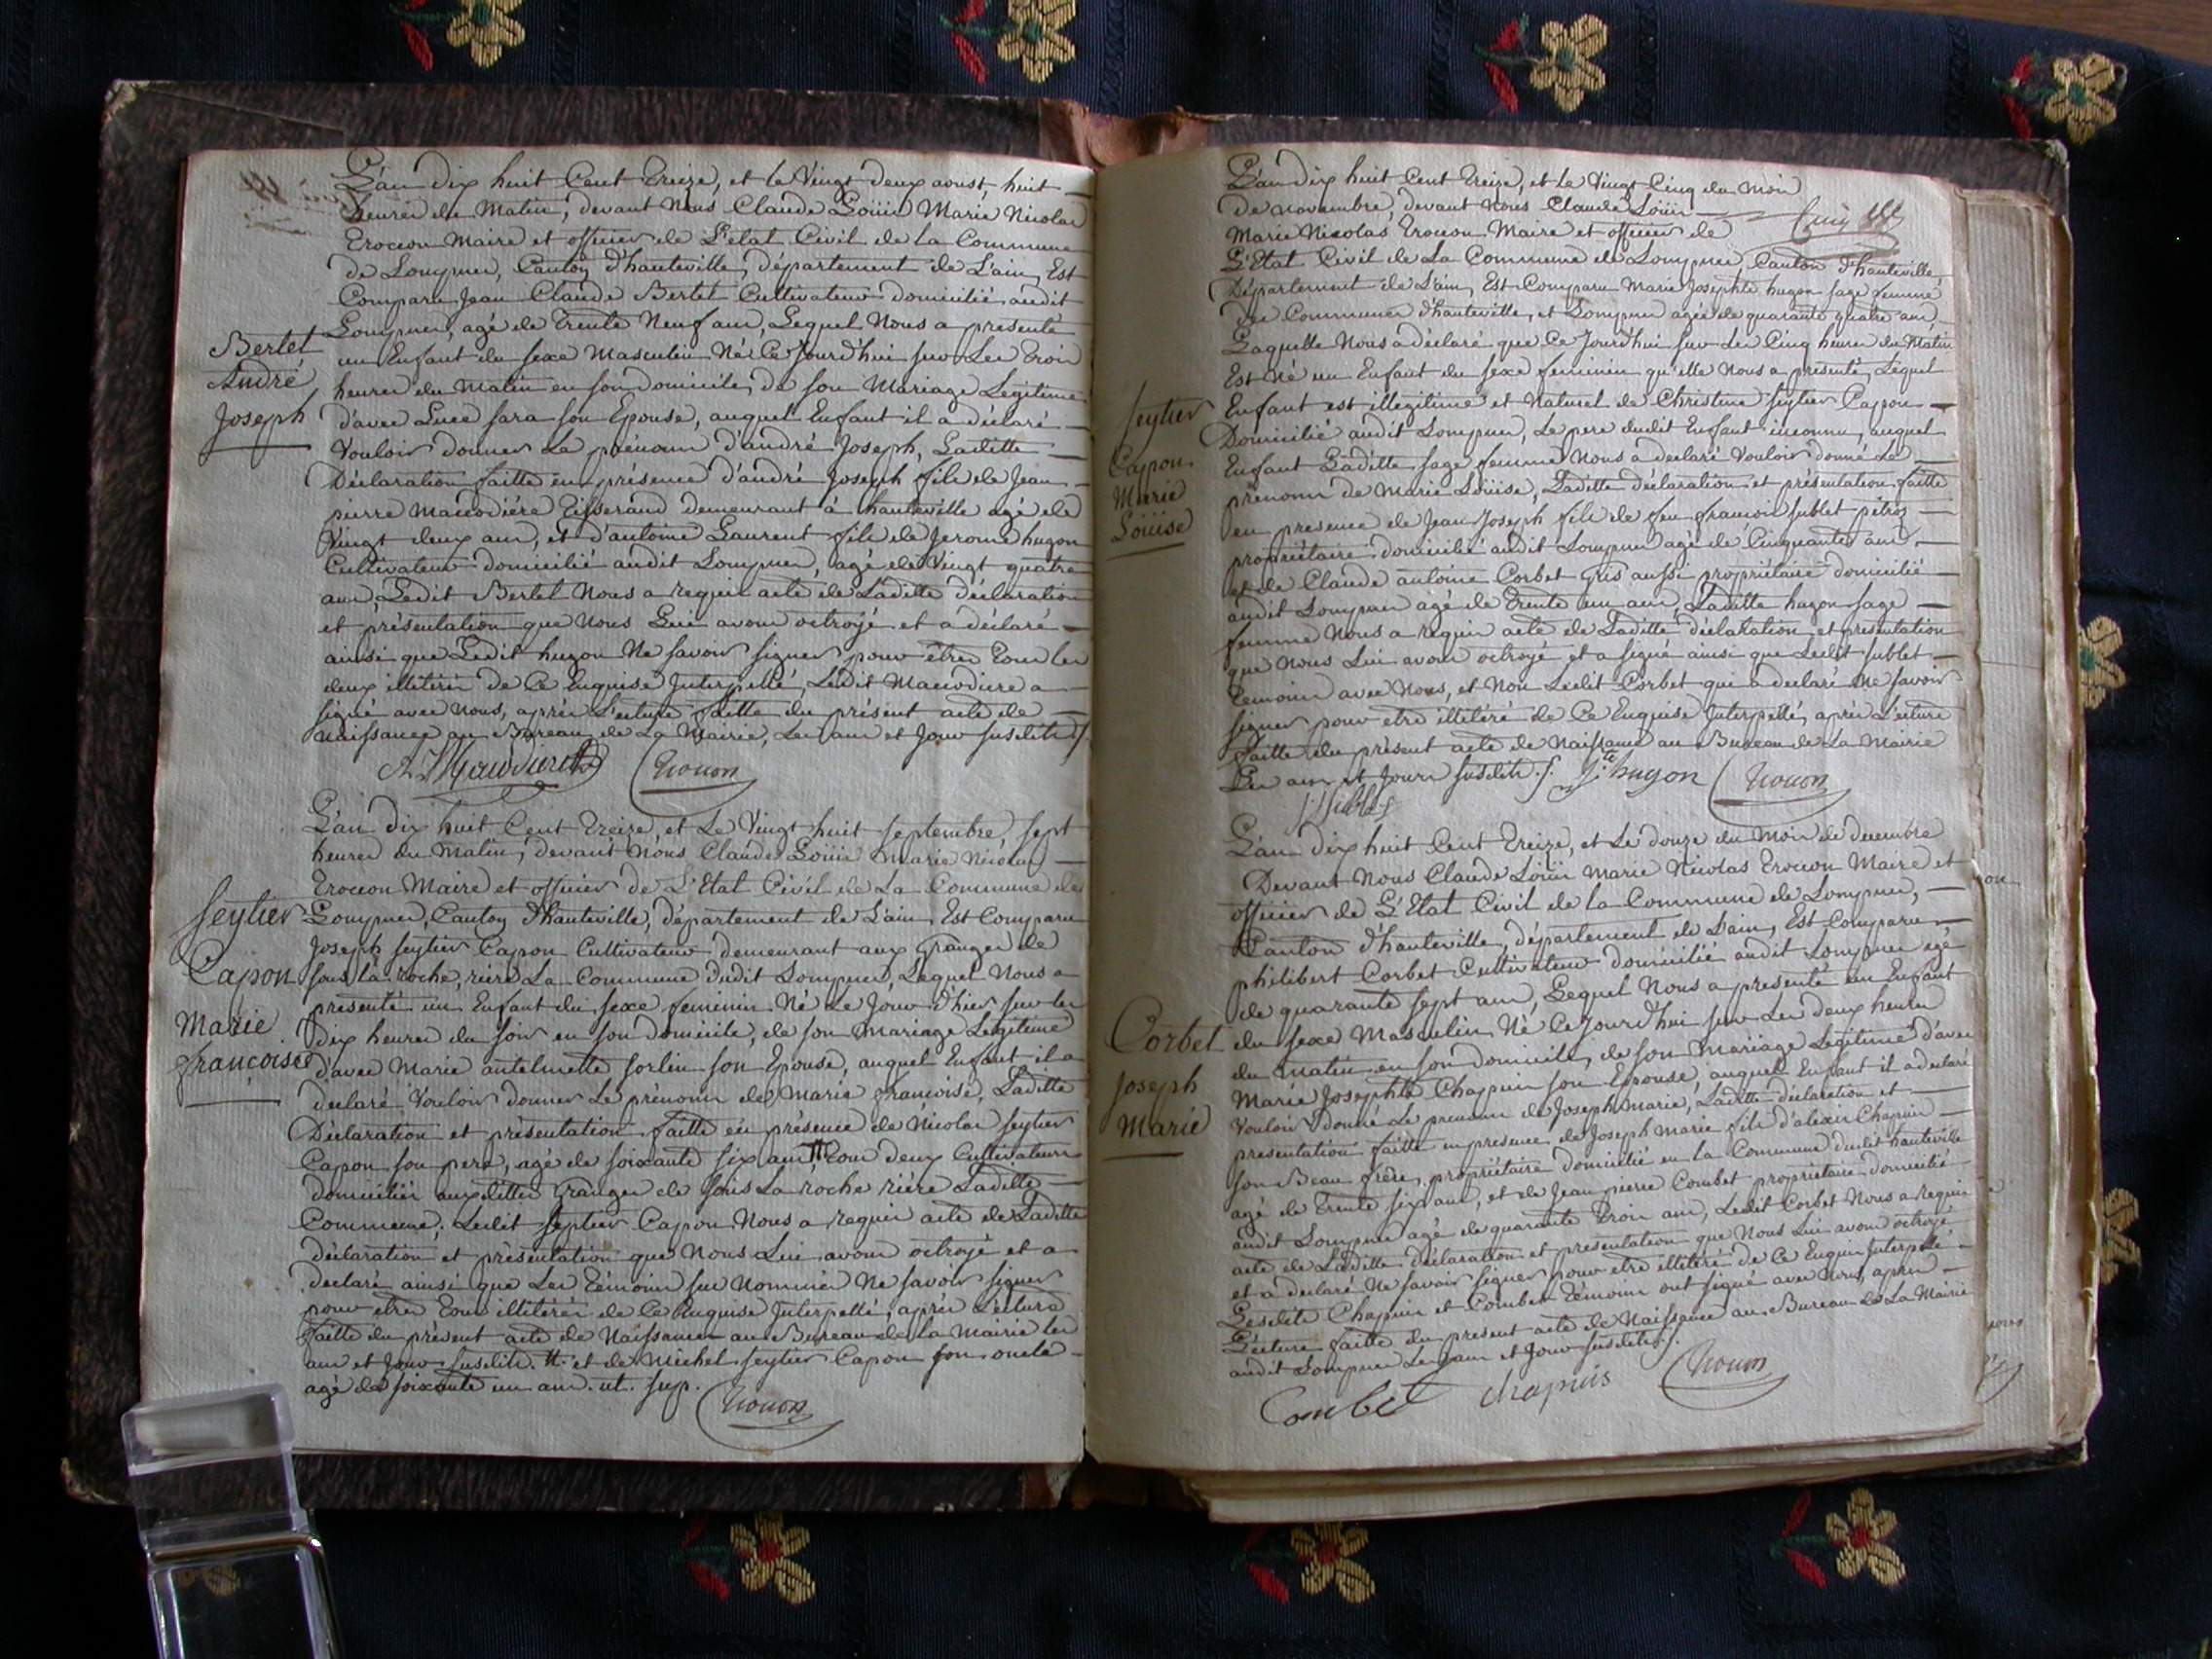 L'an dix huit Cent treize, et le Vingt deux aoust, huit
heures du Matin, devant Nous Claude Loüis Marie Nicolas
Troccon Maire et officier de L'etat Civil de la Commune
de Lompnes, Canton d'hauteville, département de L'ain, Est
Comparu Jean Claude Bertet Cultivateur domicilié audit
Lompnes, agé de trente Neuf ans, Lequel Nous a presenté
Bertet
André
Joseph
un Enfant du sexe Masculin Né Ce Jourd'hui sur Les trois
heures du Matin en son domicile, de son Mariage Legitime
d'avec Luce sara son Epouse, auquel Enfant il a déclaré
Vouloir donner Le prénom d'andré Joseph, Laditte
Déclaration faitte en présence d'andré Joseph fils de Jean
pierre Tisserand demeurant à hauteville agé de
Vingt deux ans, et d'antoine Laurent fils de Jerome hugon
Cultivateur domicilié audit Lompnes, agé de Vingt quatre
ans, Ledit Bertet Nous a requis acte de Laditte déclaration
et présentation que Nous Lui avons octroyé et a déclaré
ainsi que Ledit hugon Ne savoir signer pour être tous les
deux illitérés de Ce Enquis et Interpellé, Ledit a
signé avec Nous, après Lecture faitte du présent acte de
Naissance au Bureau de La Mairie, Les an et Jour susdits ./.
Trocon
L'an dix huit Cent treize, et Le Vingt huit septembre, sept
heures du Matin, devant Nous Claude Loüis Marie Nicolas
Troccon Maire et officier de L'Etat Civil de La Commune de
Seytier
Capon
Marie
françoise
Lompnes, Canton d'hauteville, département de L'ain, Est Comparu
Joseph seytier Capon Cultivateur demeurant aux Granges de
sous la roche, rière La Commune dudit Lompnes, Lequel Nous a
présenté un Enfant du sexe feminin Né Le Jour d'hier sur les
dix heures du soir en son domicile, de son Mariage Legitime
d'avec Marie antelmette sorlin son Epouse, auquel Enfant il a
déclaré Vouloir donner Le prénom de Marie françoise, Laditte
Déclaration et présentation faitte en présence de Nicolas seytier
Capon son pere, agé de soixante six ans # tous deux Cultivateurs
domiciliés auxdittes Granges de sous La roche rière Laditte
Commune, Ledit seytier Capon Nous a requis acte de Laditte
déclaration et présentation que Nous Lui avons octroyé et a
declaré ainsi que Les témoins sus Nommés Ne savoir signer
pour etre tous illitérés de Ce Enquis et Interpellé, après Lecture
faitte du présent acte de Naissance au Bureau de la Mairie les
an et Jour susdits. #. et de Michel seytier Capon son oncle
agé de soixante un ans. ut. sup.
Trocon
L'an dix huit Cent treize, et Le Vingt Cinq du mois
De novembre, devant Nous Claude Loüis
Cinq
Marie Nicolas Trocon Maire et officier de
L'Etat Civil de La Commune de Lompnes, Canton d'hauteville
Département de L'ain, Est Comparu Marie Josephte hugon sage femme
des Communes d'hauteville, et Lompnes agée de quarante quatre ans
Laquelle Nous a déclaré que Ce Jourd'hui sur Les Cinq heures du Matin
Est Né un Enfant du sexe feminin qu'elle Nous a présenté, Lequel
Seytier
Capon
Marie
Loüise
Enfant est illégitime et Naturel de Christine seytier Capon
Domicilié audit Lompnes, Le pere dudit Enfant inconnu, auquel
Enfant Laditte sage femme Nous a declaré Vouloir donné Le
prénom de Marie Loüise, Laditte déclaration et présentation faitte
en presence de Jean Joseph fils de feu françois sublet pétroz
propriétaire domicilié audit Lompnes agé de Cinquante ans,
et de Claude antoine Corbet Gris aussi propriétaire domicilié
audit Lompnes agé de trente un ans, Laditte hugon sage
femme Nous a requis acte de Laditte déclaration et présentation
que Nous Lui avons octroyé et a signé ainsi que Ledit sublet
témoin avec Nous, et Non Ledit Corbet qui a declaré Ne savoir
signer pour etre illitéré de Ce Enquis et Interpellé, après Lecture
faitte du présent acte de Naissance au Bureau de La Mairie
Les an et Jours susdits ./. Jte hugon Trocon
JJ sublet
L'an dix huit Cent treize, et Le douze du Mois de decembre
Devant Nous Claude Loüis Marie Nicolas Trocon Maire et
officier de L'Etat Civil de la Commune de Lompnes,
Canton d'hauteville, département de L'ain, Est Comparu
philibert Corbet Cultivateur domicilié audit Lompnes agé
de quarante sept ans, Lequel Nous a presenté un Enfant
Corbet
Joseph
Marie
du sexe Masculin Né Ce Jourd'hui sur Les deux heures
du Matin en son domicile, de son Mariage Légitime d'avec
Marie Josephte Chapuis son Epouse, auquel Enfant il a declaré
Vouloir donné Le prenom de Joseph Marie, Laditte déclaration et
presentation faitte en presence de Joseph Marie fils d'alexis Chapuis
son Beau frere, propriétaire domicilié en la Commune dudit hauteville
agé de trente six ans, et de Jean pierre Combet propriétaire domicilié
audit Lompnes agé de quarante trois ans, Ledit Corbet Nous a requis
acte de Laditte déclaration et presentation que Nous Lui avons octroyé
et a declaré Ne savoir signer pour etre illitéré de Ce Enquis Interpellé
Lesdits Chapuis et Combet témoins ont signé avec Nous, après
Lecture faitte du present acte de Naissance au Bureau de La Mairie
audit Lompnes Les an et Jour susdits ./.
Combet chapuis Trocon